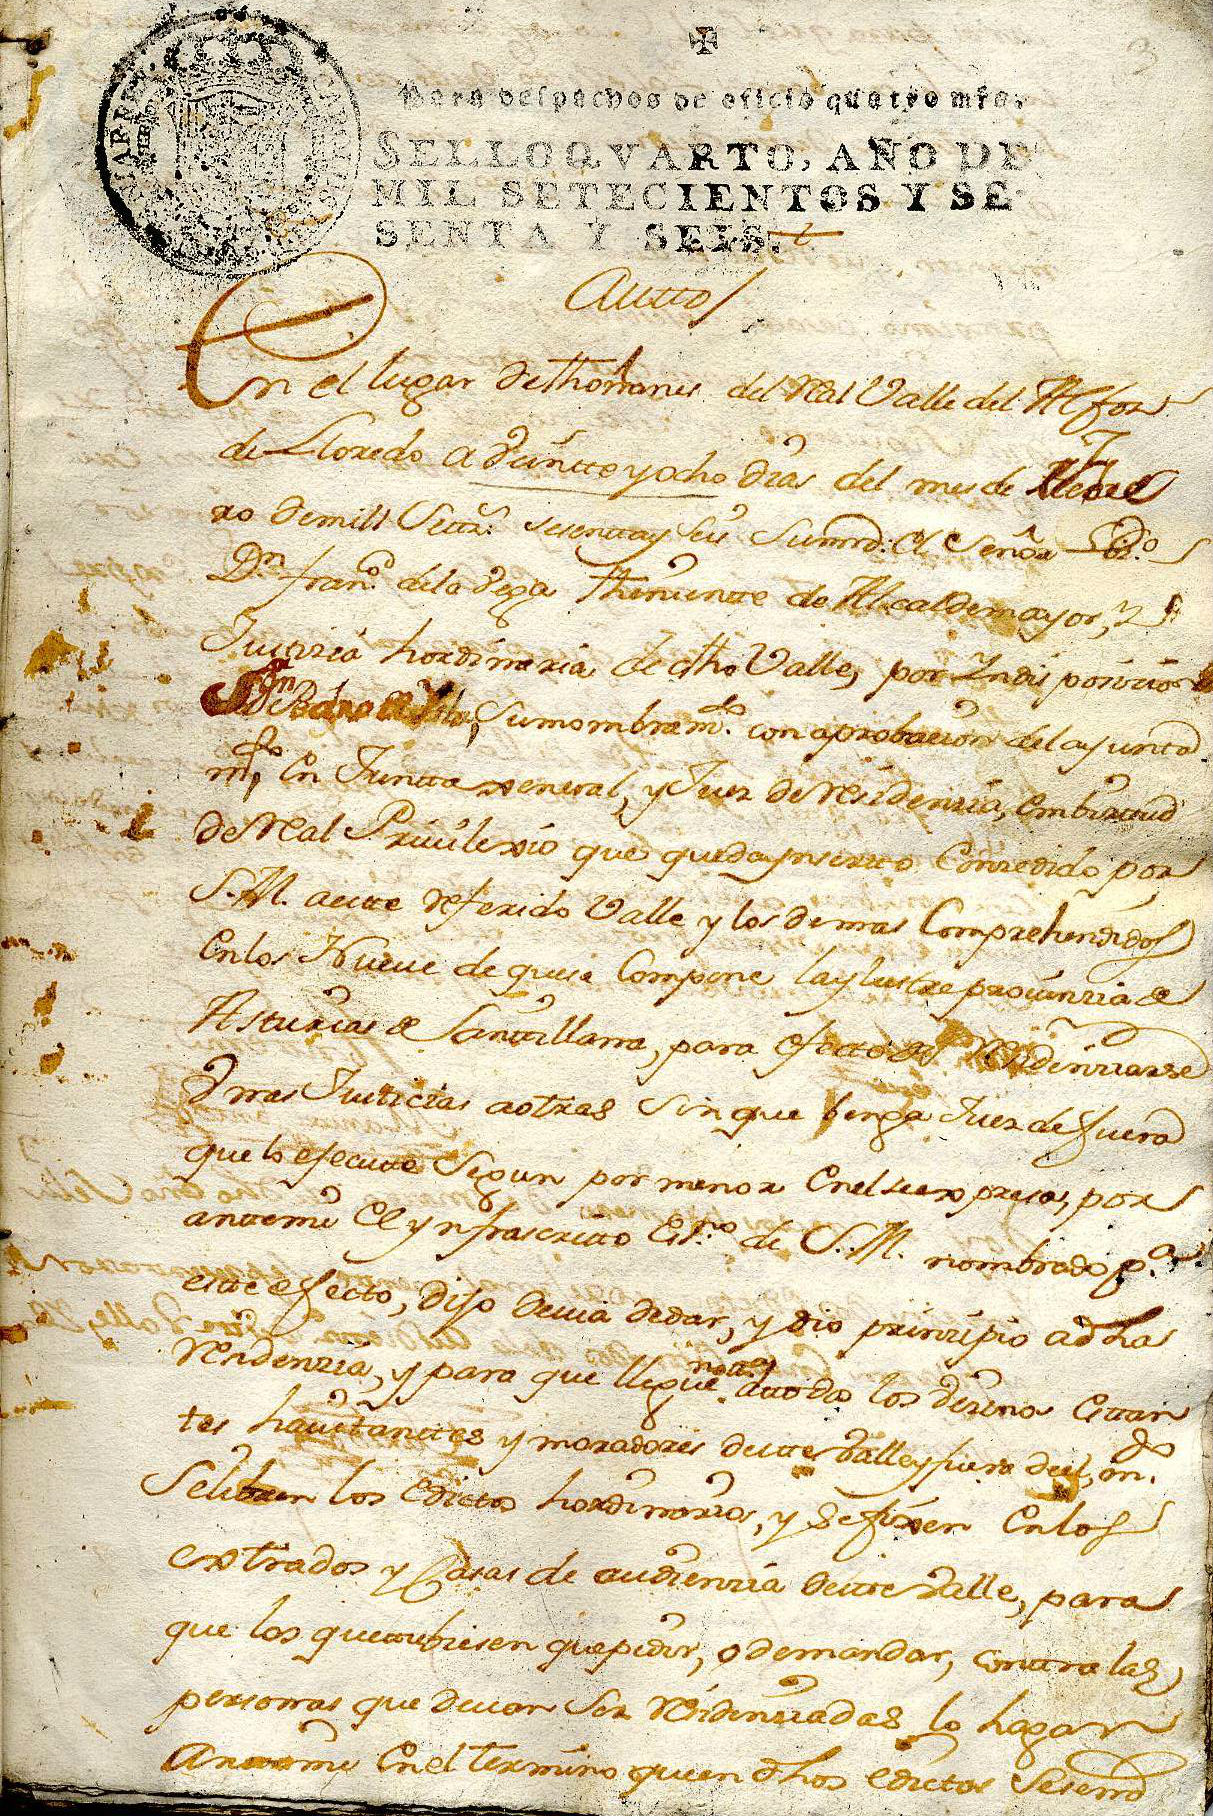 Para despachos de oficio quatro mrs.
SELLO QVARTO, AÑO DE
MIL SETECIENTOS Y SE
SENTA Y SEIS.
Autto
En el lugar de thoñanes del Real Valle del Alfoz
de Lloredo a veintte y ocho dias del mes de
ro de mill Settz. sesenta y seis Su mrd. el Señor Lizdo.
Dn. franco. de la Vega theniente de Alcalde mayor, y
Justizia hordinaria de dho Valle, por Yndisposizion
de Dn Pedro su nombramto. con aprobacion del ayunta
mto, en Juntta xeneral, y Juez de residenzia, en birttud
de Real Privilexio que queda ynsertto Conzedido por
S. M. a este referido Valle y los demas Comprehendidos
en los Nueve de que se Compone la ylustre provinzia de
Asturias de Santtillana, para efectto de residenziarse
Unas Justicias a otras sin que benga Juez de fuera
que lo efecutte segun por menor en el se expresa, por
antte mi el ynfrascritto Essno. de S. M. nombrado pa.
este efecto, dijo devia de dar, y dio prinzipio a dha
residenzia, y para que llegue nota. a ttodos los vezinos esttan
tes havitanttes y moradores de este Valle y fuera de el, mdo.
se libren los edictos hordinarios, y se fixen en los
extrados y Casas de audienzia de este Valle, para
que los que tubiesen que pedir, o demandar, contra las
personas que devan ser residenziadas lo hagan
Antte mi en el termino que en dhos edictos se